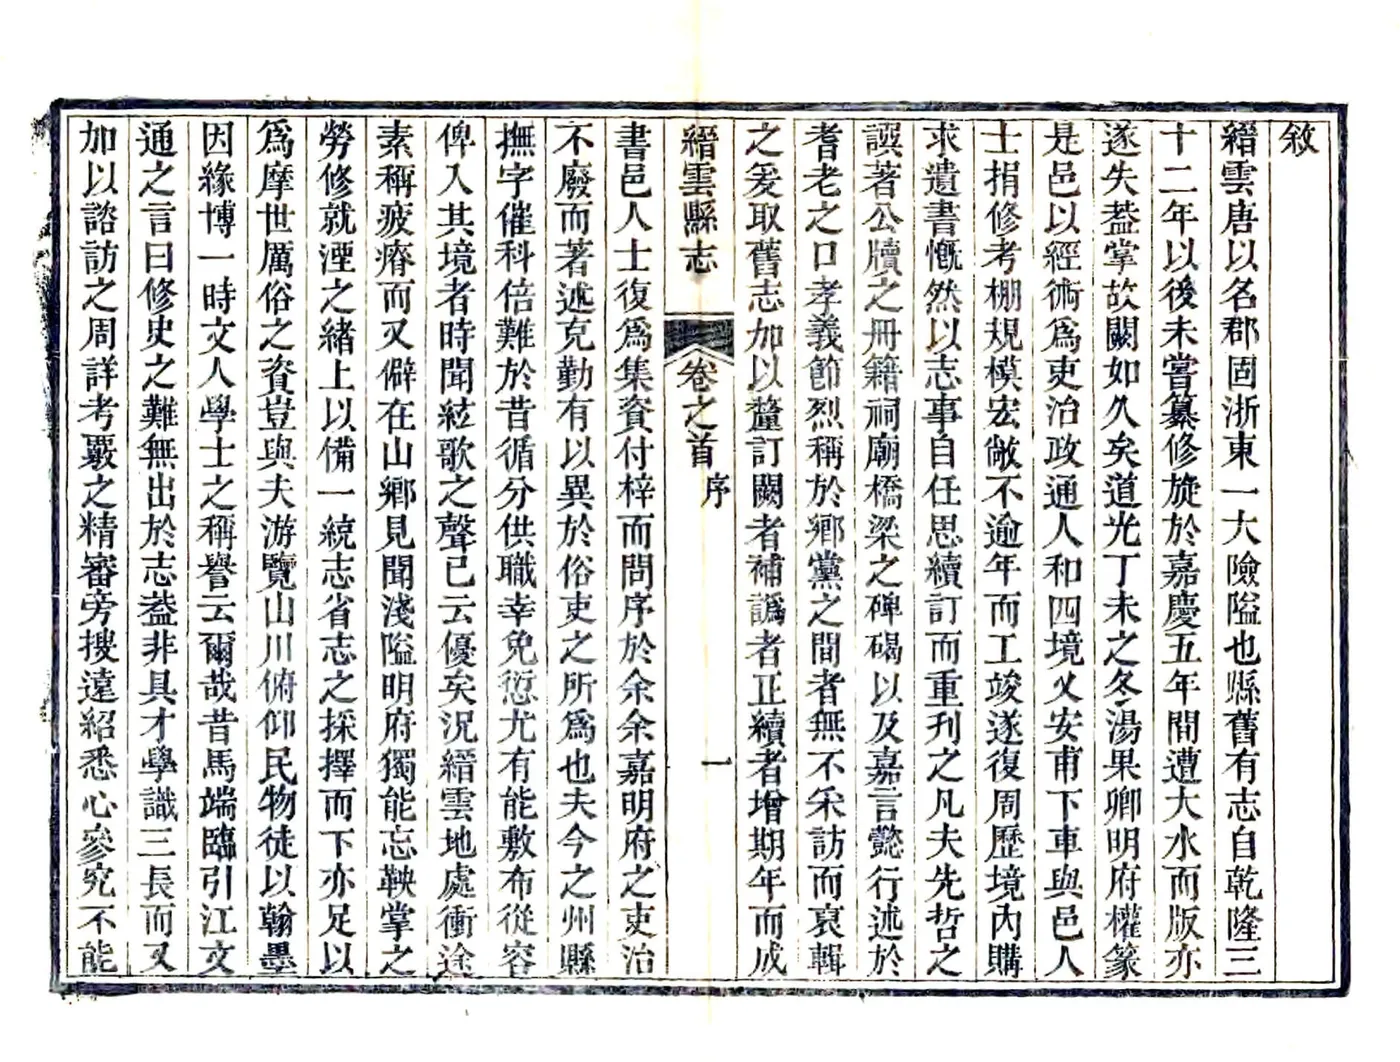 敘
縉雲唐以名郡固浙東一大險隘也縣舊有志自乾隆三
十二年以後未嘗纂修旋於嘉慶五年間遭大水而版亦
遂失葢掌故闕如久矣道光丁未之冬湯果卿明府權篆
是邑以經術爲吏治政通人和四境乂安甫下車與邑人
士捐修考棚規模宏敞不逾年而工竣遂復周歷境內購
求遺書慨然以志事自任思續訂而重刊之凡夫先哲之
譔著公牘之冊籍祠廟橋梁之碑碣以及嘉言懿行述於
耆老之口孝義節烈稱於鄉黨之間者無不采訪而裒輯
之爰取舊志加以釐訂闕者補譌者正續者增期年而成
縉雲縣志 卷之首 序 一
書邑人士復爲集資付梓而問序於余余嘉明府之吏治
不廢而著述克勤有以異於俗吏之所爲也夫今之州縣
撫字催科倍難於昔循分供職幸免愆尤有能敷布從容
俾入其境者時聞絃歌之聲已云優矣況縉雲地處衝途
素稱疲瘠而又僻在山鄉見聞淺隘明府獨能忘鞅掌之
勞修就湮之緒上以備一統志省志之採擇而下亦足以
爲摩世厲俗之資豈與夫游覽山川俯仰民物徒以翰墨
因緣博一時文人學士之稱譽云爾哉昔馬端臨引江文
通之言曰修史之難無出於志葢非具才學識三長而又
加以諮訪之周詳考覈之精審旁搜遠紹悉心參究不能